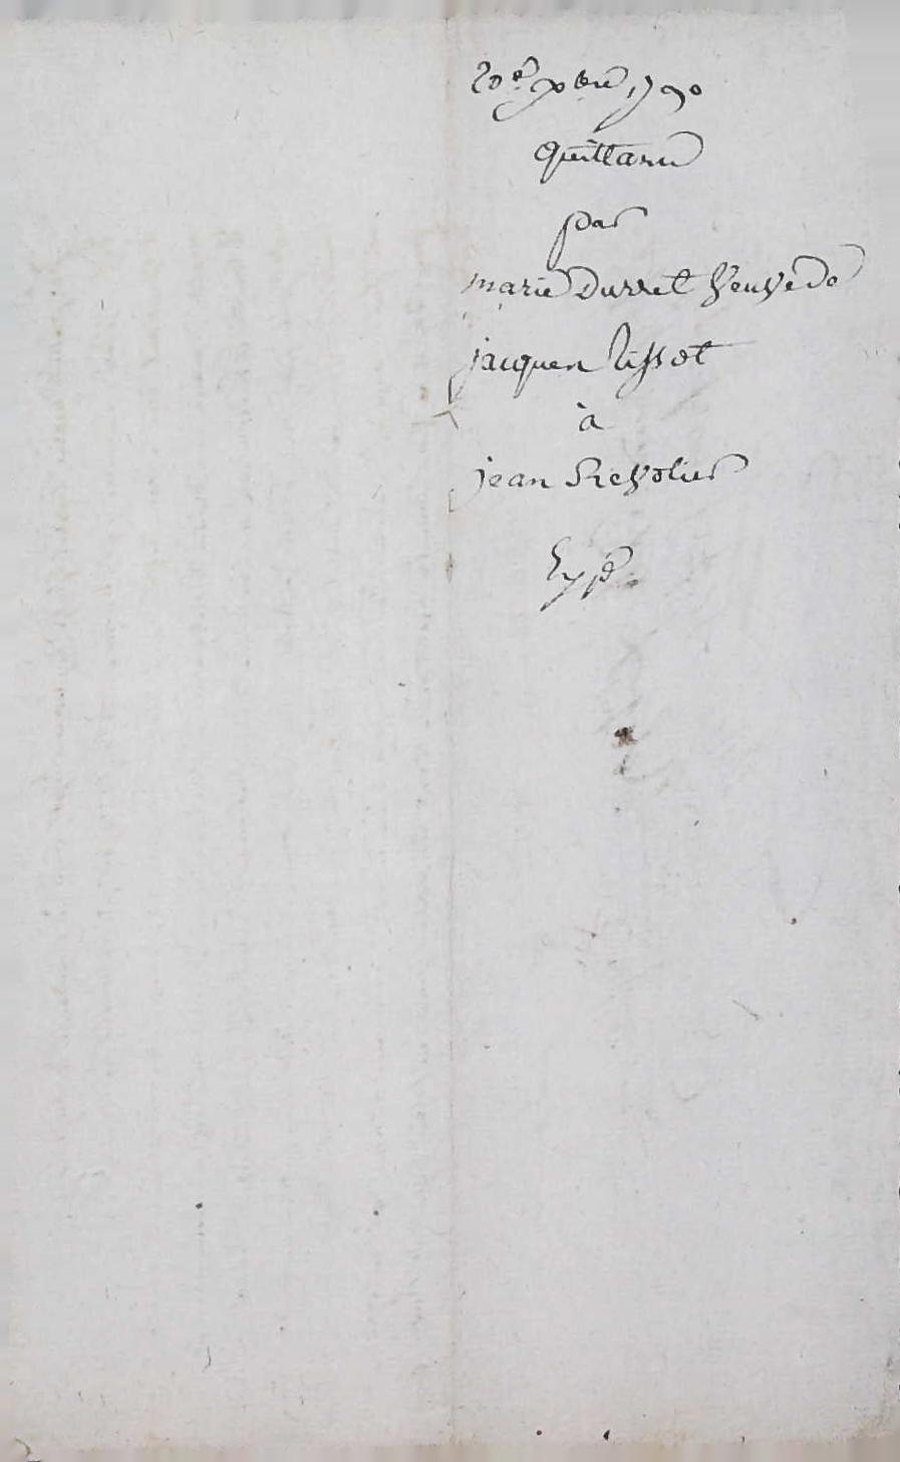 20e xbre 1790
quittance
par
marie Durret Veuve de
jacques tissot
à
jean Revolier
Expé